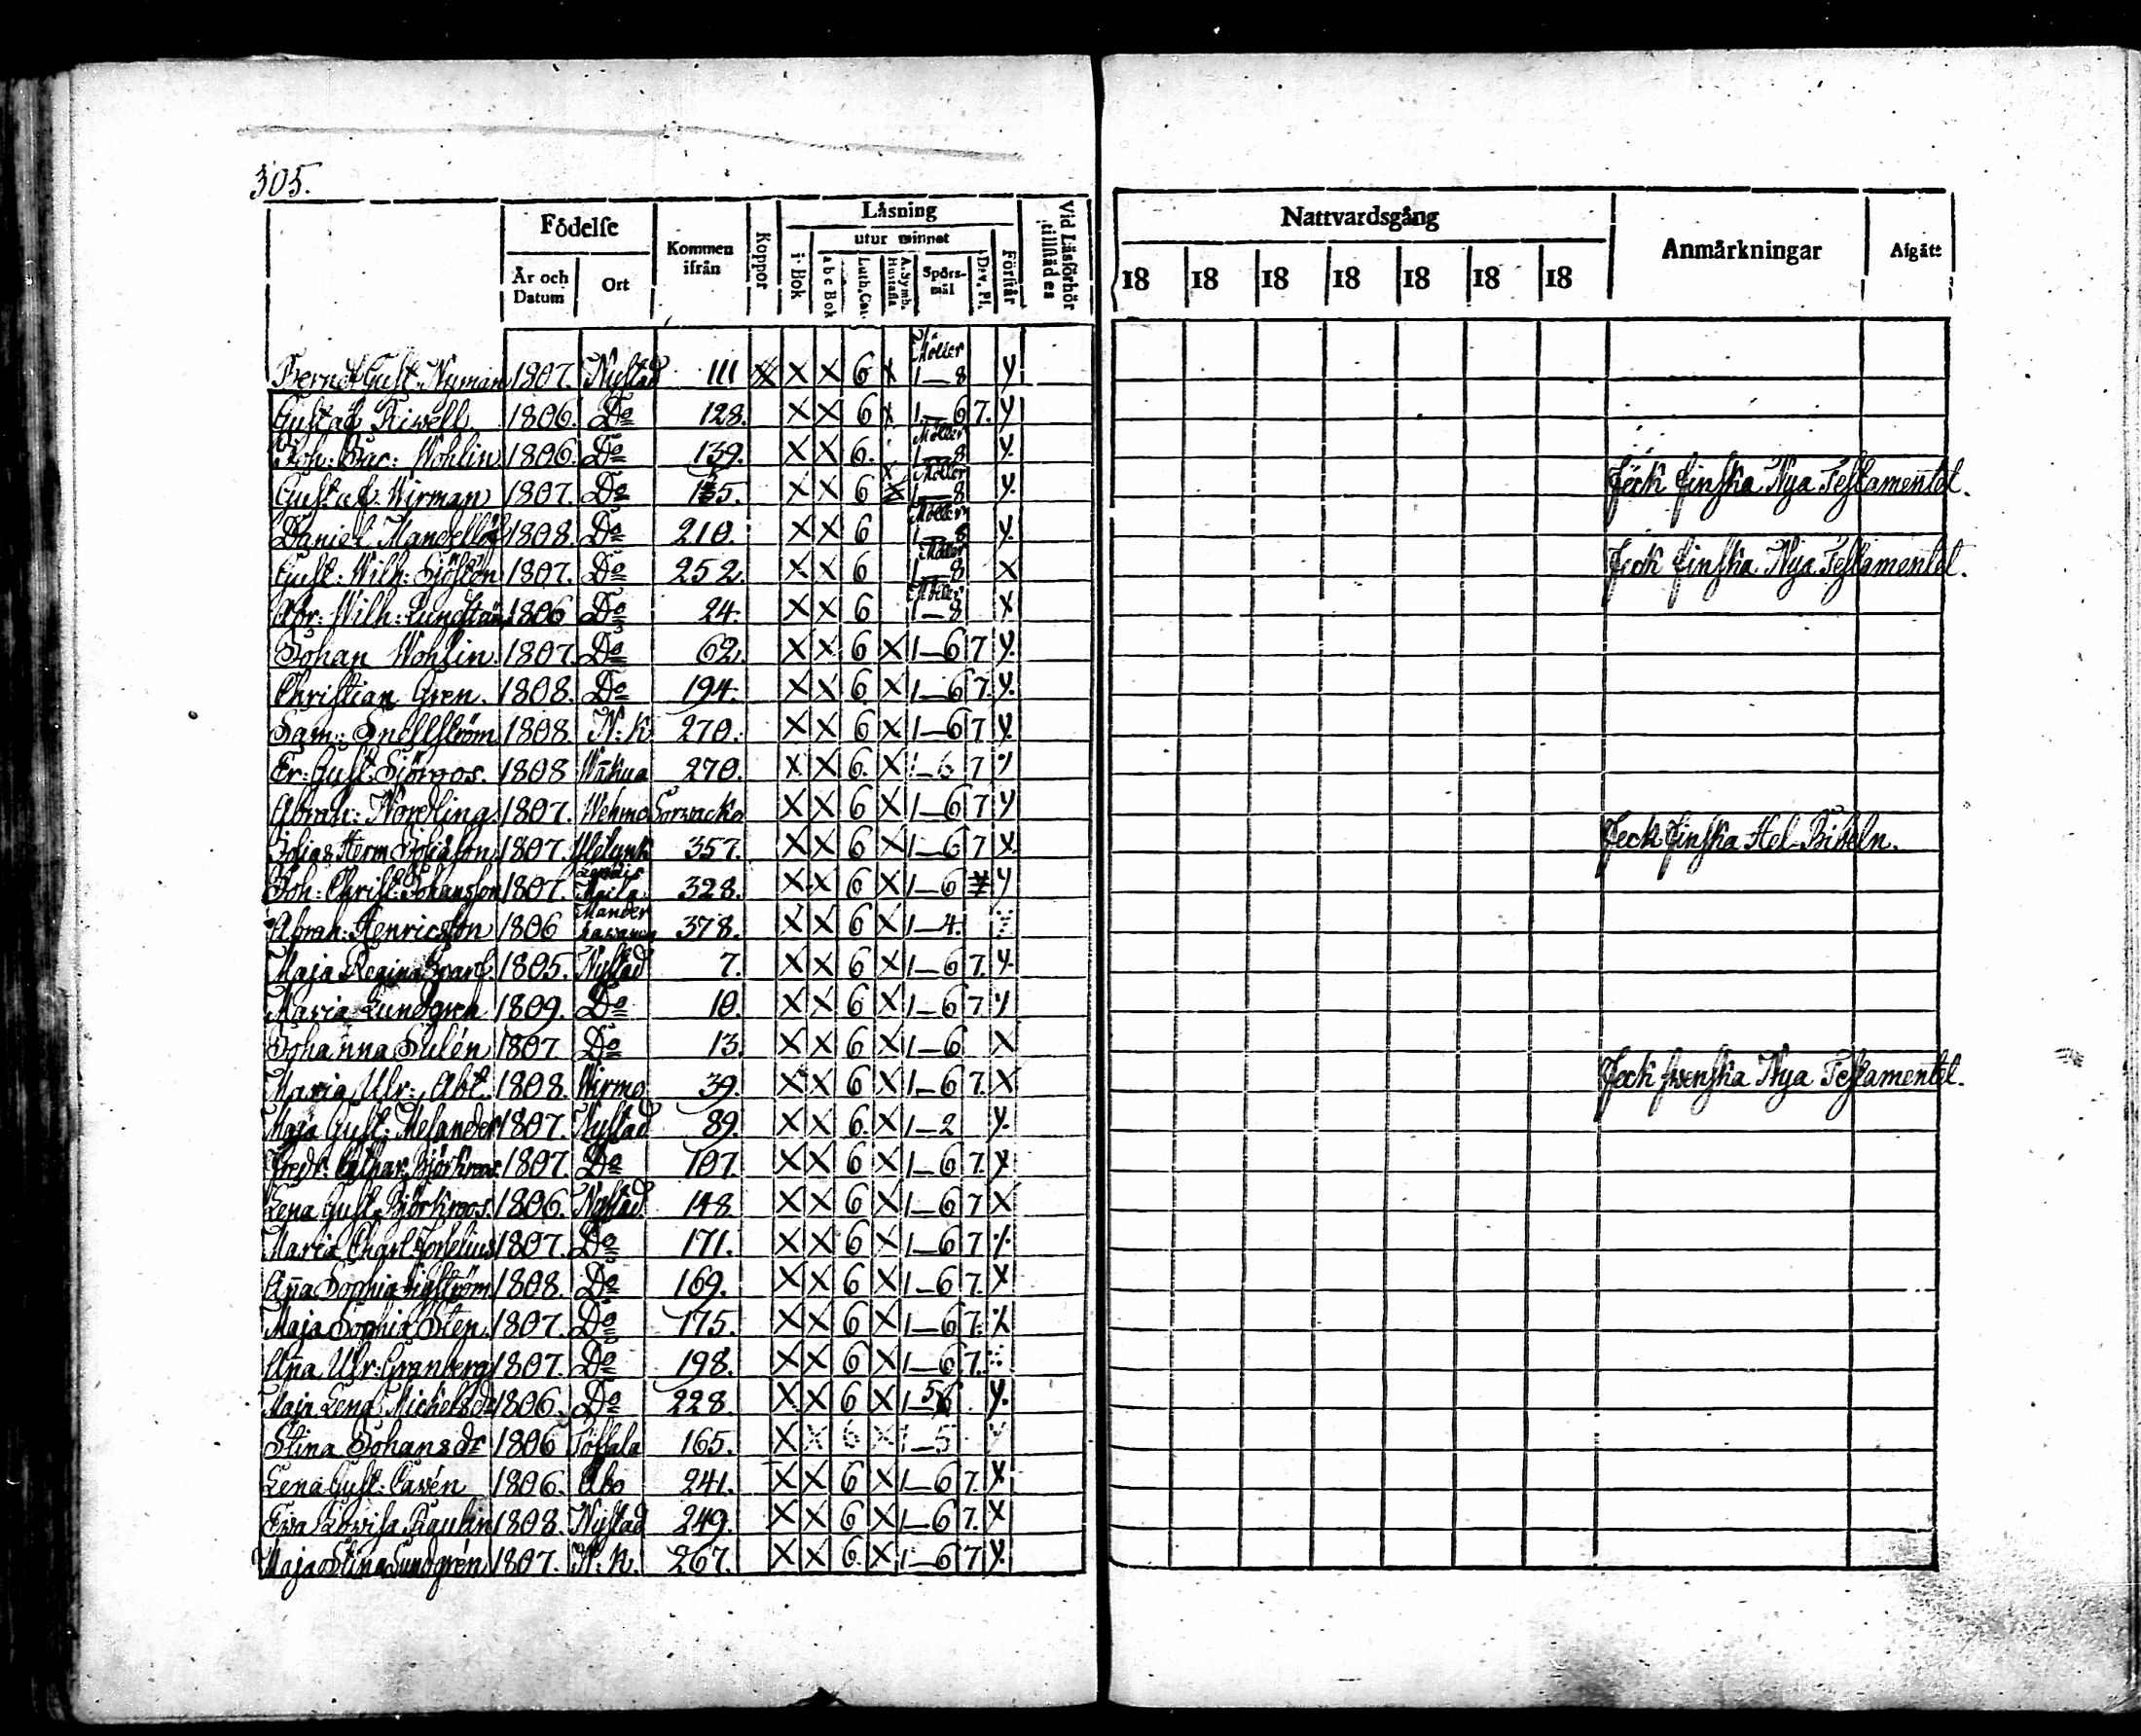 305.
Födelse Kommen ifrån Koppor Läsning Vid Läsförhör tillstädes Nattvardsgång Anmärkningar Afgått
År och Datum Ort i Bok utur minnet Förstår
a b c Bok Luth. Cat. A. Symb. Hustafla Spörsmål Dav. Ps.
18 18 18 18 18 18 18
Bernd Gust. Nyman 1807. Nystad 111 X X X 6 X Möller 1–8 y
Gustaf Kiwell 1806. Do 128. X X 6 x 1–6 7. y
Joh: Jac: Wohlin 1806. Do 139. X X 6. Möller 1–8 y.
Gustaf Wirman 1807. Do X X 6 x Möller 1–8 y. Feck finska Nya Testamentet.
Daniel Mandellöf 1808. Do 210. X X 6 Möller 1–8 y.
Gust: Wilh: Sjöstén 1807. Do 252. X X 6 Möller 1–8 X Feck finska Nya Testamentet.
Abr: Wilh: 1806 Do 24. X X 6 Möller 1–8 X
Johan Wohlin. 1807. Do 62. X X 6 X 1–6 7 y.
Christian Gren. 1808. Do 194. X X 6 X 1–6 7. y.
Sam: Snellström 1808. N: K 270. X X 6 X 1–6 7 y.
Er: Gust: Sjöroos. 1808 270. X X 6. X 1–6 7 y
Abrah: Nordling. 1807. Wehmo X X 6 X 1–6 7 y
Josias Herm 1807. 357. X X 6 X 1–6 7 X Feck finska Hel Bibeln.
Joh: Christ: Johansson 1807. 328. X X 6 X 1–6 y
Abrah: Henricsson 1806 378. X X 6 X 1–4.
Maja Regina 1805. Nystad 7. X X 6 X 1–6 7. y.
Maria Lundgren 1809. Do 10. X X 6 X 1–6 7 y
Johanna Sulén 1807 Do 13. X X 6 X 1–6 X
Maria Ulr: Abt. 1808. Wirmo 39. X X 6 X 1–6 7. X Feck swenska Nya Testamentet.
Maja Gust: Melander 1807. Nystad 89. X X 6. X 1–2 y.
Fredr. Cathar. Björkroos 1807. Do 107. X X 6 X 1–6 7. y
Lena Gust: Björkroos. 1806. Nystad 148 X X 6 X 1–6 7 X
Maria Charl. 1807. Do 171. X X 6 X 1–6 7
Aña Sophia 1808. Do 169. X X 6 X 1–6 7. X
Maja Sophia Sten. 1807. Do 175. X X 6 X 1–6 7.
Aña Ulr: Granberg 1807. Do 198. X X 6 X 1–6 7.
Maja Lena Michelsdr 1806. Do 228. X X 6 X 1–5 y.
Stina Johansdr 1806 Töfsala 165. X X 6 X 1–5 y
Lena Gust: Cavén 1806. Åbo 241. X X 6 X 1–6 7. X
Ewa Lovisa Paulin 1808. Nystad 249. X X 6 X 1–6 7. X
Maja Stina Sundgrén 1807. N: K. 267. X X 6. X 1–6 7 y.